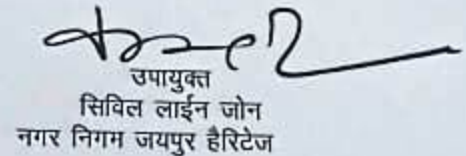 उपायुक्त
सिविल लाईन जोन
नगर निगम जयपुर हैरिटेज